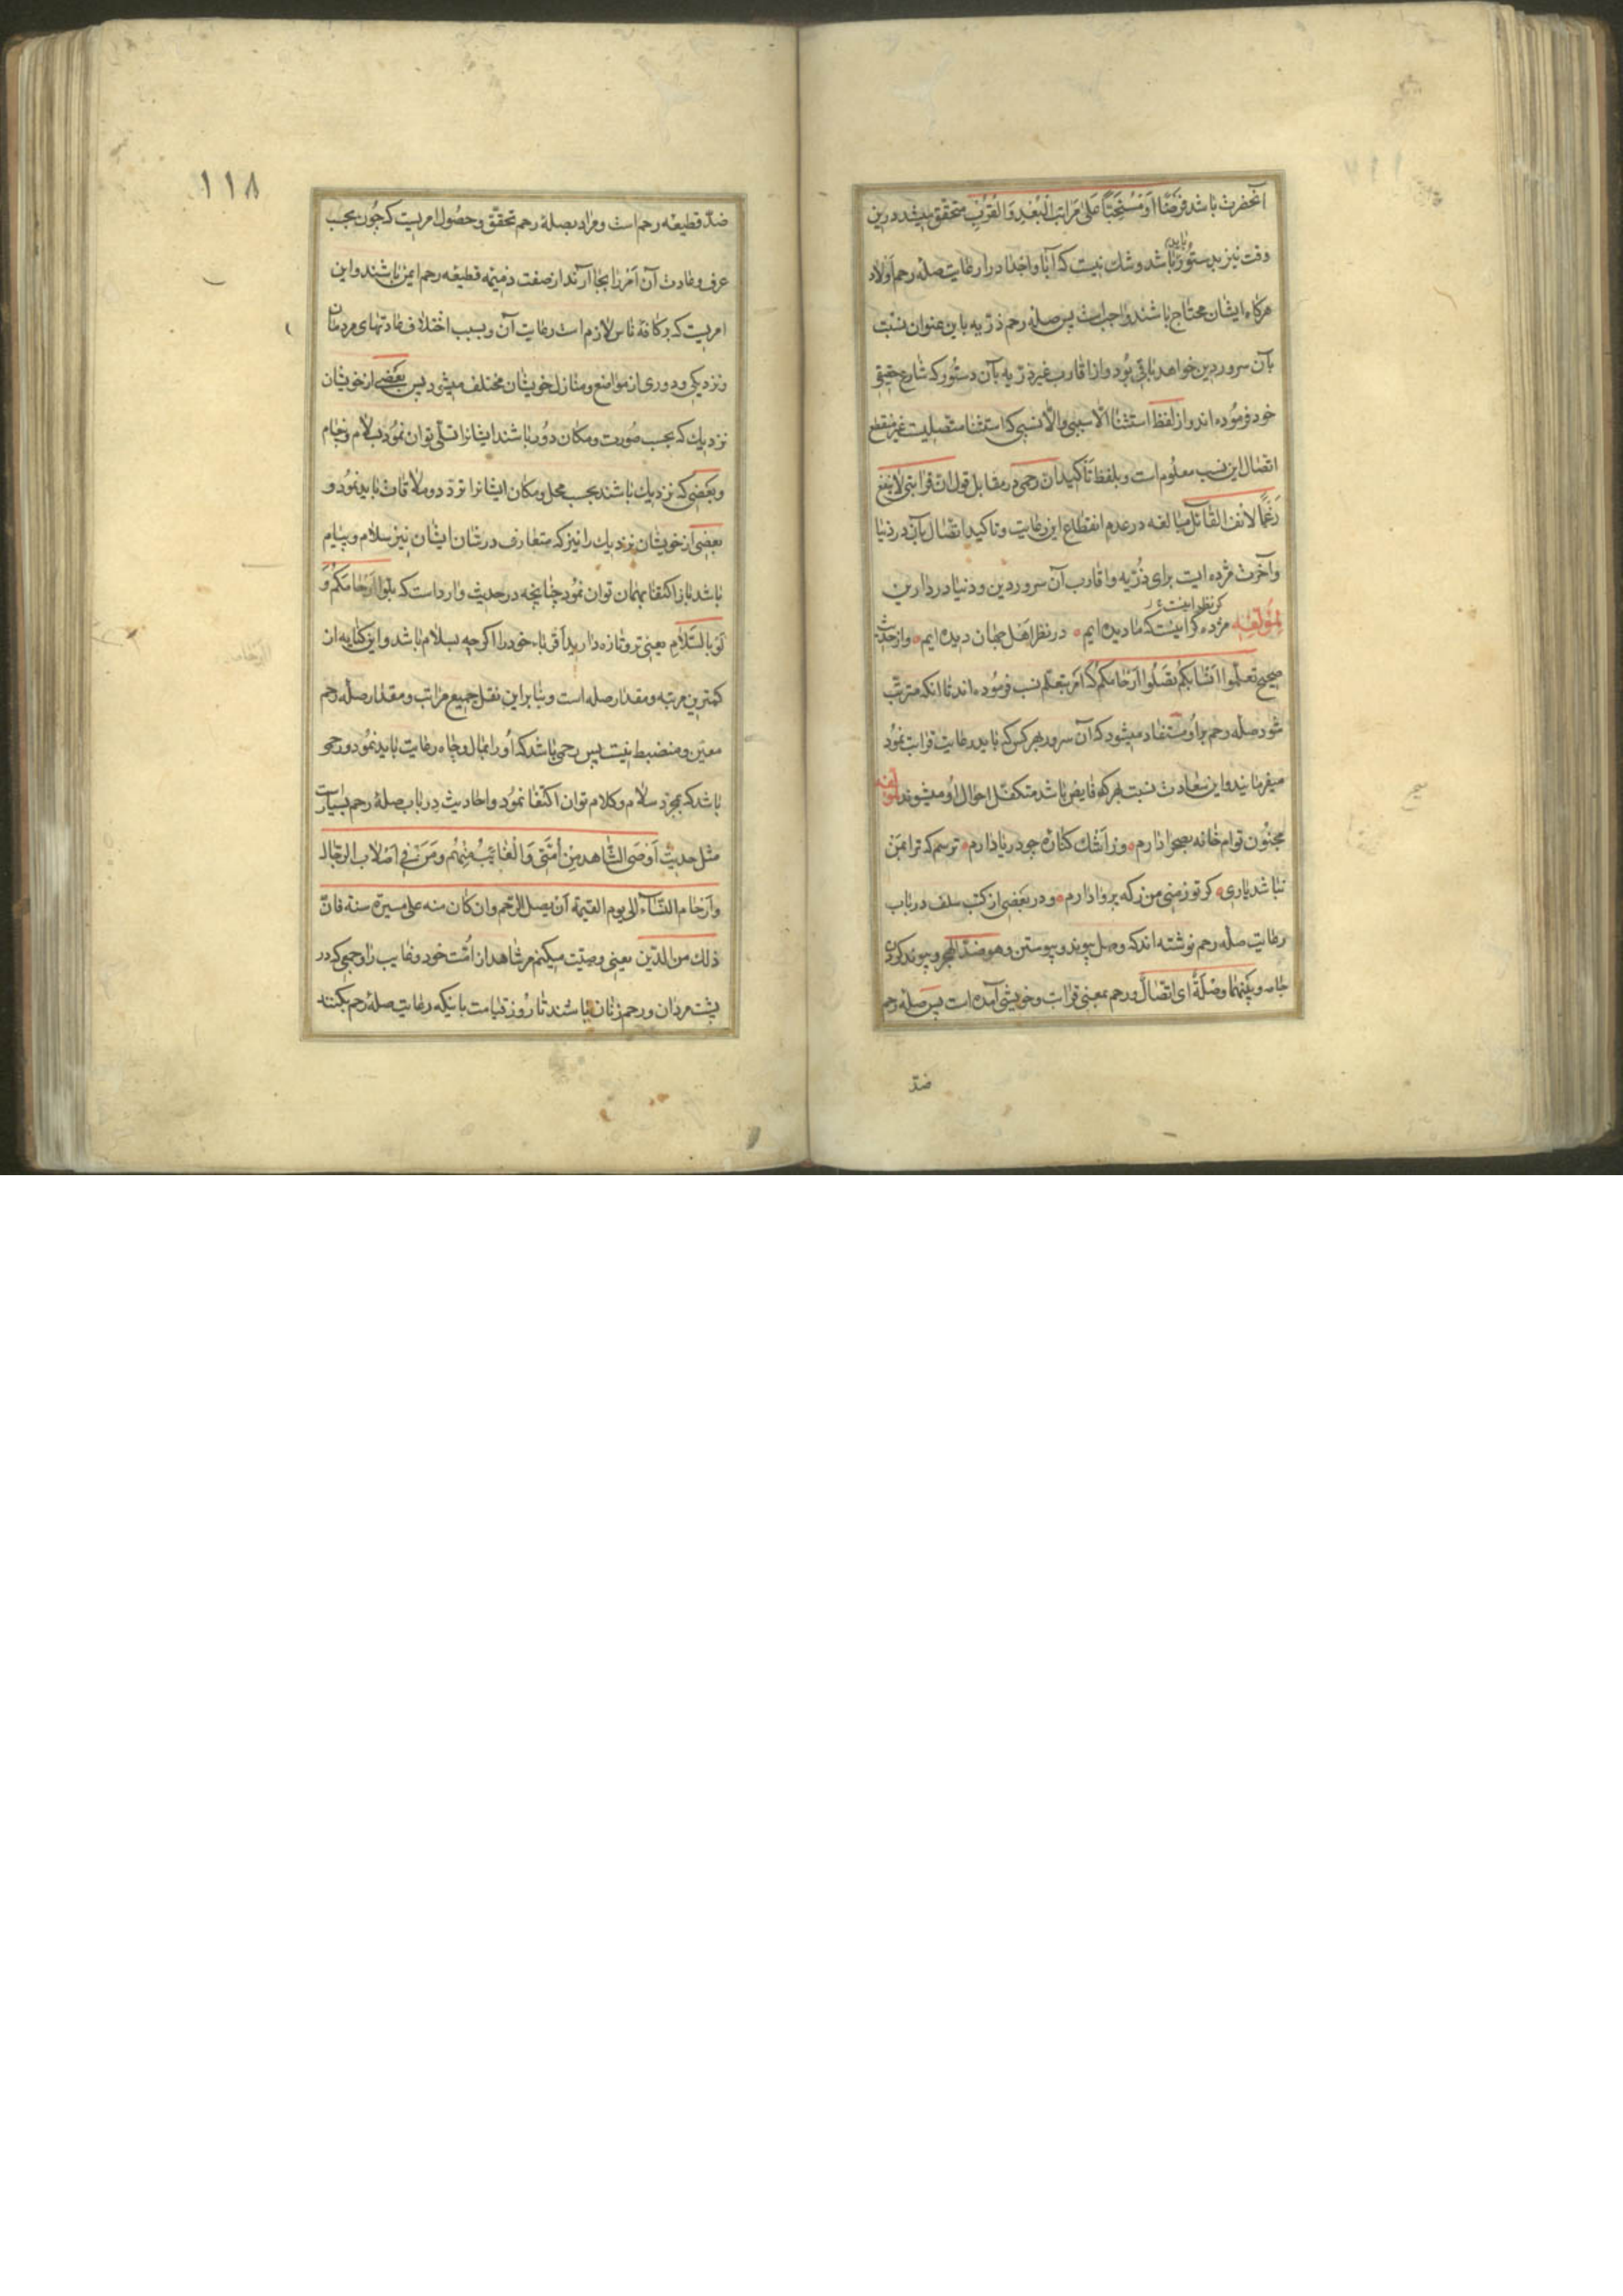 آنحضرت باشد فرضًا اَوْ مُسْتَحَبًّا عَلیٰ مَرَاتِبِ الْبُعْدِ وَالْقُرْبِ متحقّق میشد درین
باید
وقت نیز بدستُور باشد وشك نیست که آبا واجداد را رعایت صلهٔ رحم اولاد
هرکاه ایشان محتاج باشند واجبست پس صلهٔ رحم ذرّیه باین عنوان نسبت
بآن سرور دین خواهد باقی بُود واز اقارب غیر ذرّیه بآن دستُور که شارع حقیقی
خود فرمُوده اند واز لفظ استثنا الّا سببی والّا نسبی که استثنا متّصلیست غیر منقطع
اتصال این نسب معلُوم است وبلفظ تأکید ان رحمی در مقابل قول ان قرابتی لا ینفع
رَغْمًا لانف القائل مبالغه در عدم انقطاع این رعایت وتاکید اتصال بآن در دنیا
وآخرت مژده ایست برای ذُرّیه واقارب آن سرور دین ودنیا در دارین
کر نظر اینست
لمؤلفه مژده کر اینست که ما دیده ایم در نظر اهل جهان دیده ایم واز حدیث
صحیح تعلّموا انسٰابکُمْ تصَلُوا اَرْحٰامَکُمْ که امر بتعلّم نسب فرمُوده اند تا انکه مترتّب
شود صله رحم براو مستفاد میشود که آن سرور بهر کس که باید رعایت قرابت نمُود
میفرمایند واین سَعادت نسبت بهر که فایض باشد متکفّل احوال او میشوند لمؤلفه
مجنُون توام خانه بصحرا دارم وز اَشك کناره چو دریا دارم ترسم که ترا بمن
نباشد یاری کر تو ز منی من ز که پروا دارم ودر بعَضی از کتب سلف در باب
رعایت صله رحم نوشته اند که وصل پیوند وپیوستن وهو ضدّ الهجر وپیوند کردن
جامه وبینهما وصْلَةٌ ای اتصالٌ ورحم بمعنی قرابت وخویشی آمده است پس صلهٔ رحم
ضدّ
١١٨
ضدّ قطیعه رحم است ومراد بصلهٔ رحم تحقّق وحصُول امریست که چُون بحسب
عرف وعادت آن اَمْر را بجا آرند از صفت ذمیمه قطیعه رحم ایمن باشند واین
امریست که بر کافهٔ ناس لازم است رعایت آن وبسبب اختلاف عادتهای مردمان
ونزدیکی ودوری از مواضع ومنازل خویشان مختلف میشود پس بعضی از خویشان
نزدیك که بحسب صُورت ومکان دُور باشند ایشانرا تسلّی توان نمُود بسلام وپیام
وبعَضی که نزدیك باشند بحسب محل ومکان ایشانرا تردّد وملاقات باید نمُود و
بعضی از خویشان نزدیك را نیز که متعارف در شان ایشان نیز سلام وپیٰام
باشد باز اکتفا بهمان توان نمُود چنانچه در حدیث وارد است که بلّوا اَرْحٰامَکُمْ وَ
لَوْ بالسَّلٰامِ یعنی تر وتازه دارید اَقرباء خود را اکر چه بسلام باشد واین کنایه از
کمترین مرتبه ومقدار صله است وبنابر این نقل جمیع مراتب ومقدار صلهٔ رحم
معیّن ومنضبط نیست پس رحمی باشد که اُو را بمال وجاه رعایت باید نمُود ورحمی
باشد که بمجرّد سلام وکلام توان اکتفا نمُود واحادیث در باب صلهٔ رحم بسیارست
مثل حدیث اُوْصی الشّاهد مِنْ اُمَّتی وَالْغٰائِبُ مِنْهُمْ ومَنْ فی اصْلٰاب الرّجال
واَرْحٰام النّسٰآء الی یوم القیٰمة اَنْ یصل الرّحم وان کان منه علی مسیرة سنة فانّ
ذلك من الدّین یعنی وصیّت میکنم مر شاهدان امّت خود وغایب را وجمعی که در
پشت مردان ورحم زنان باشند تا رُوز قیامت باینکه رعایت صلهٔ رحم بکنند